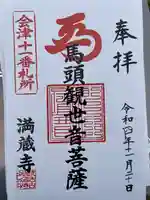 奉拝
令和四年十一月二十日
馬頭観世音菩薩
会津十一番札所
満蔵寺